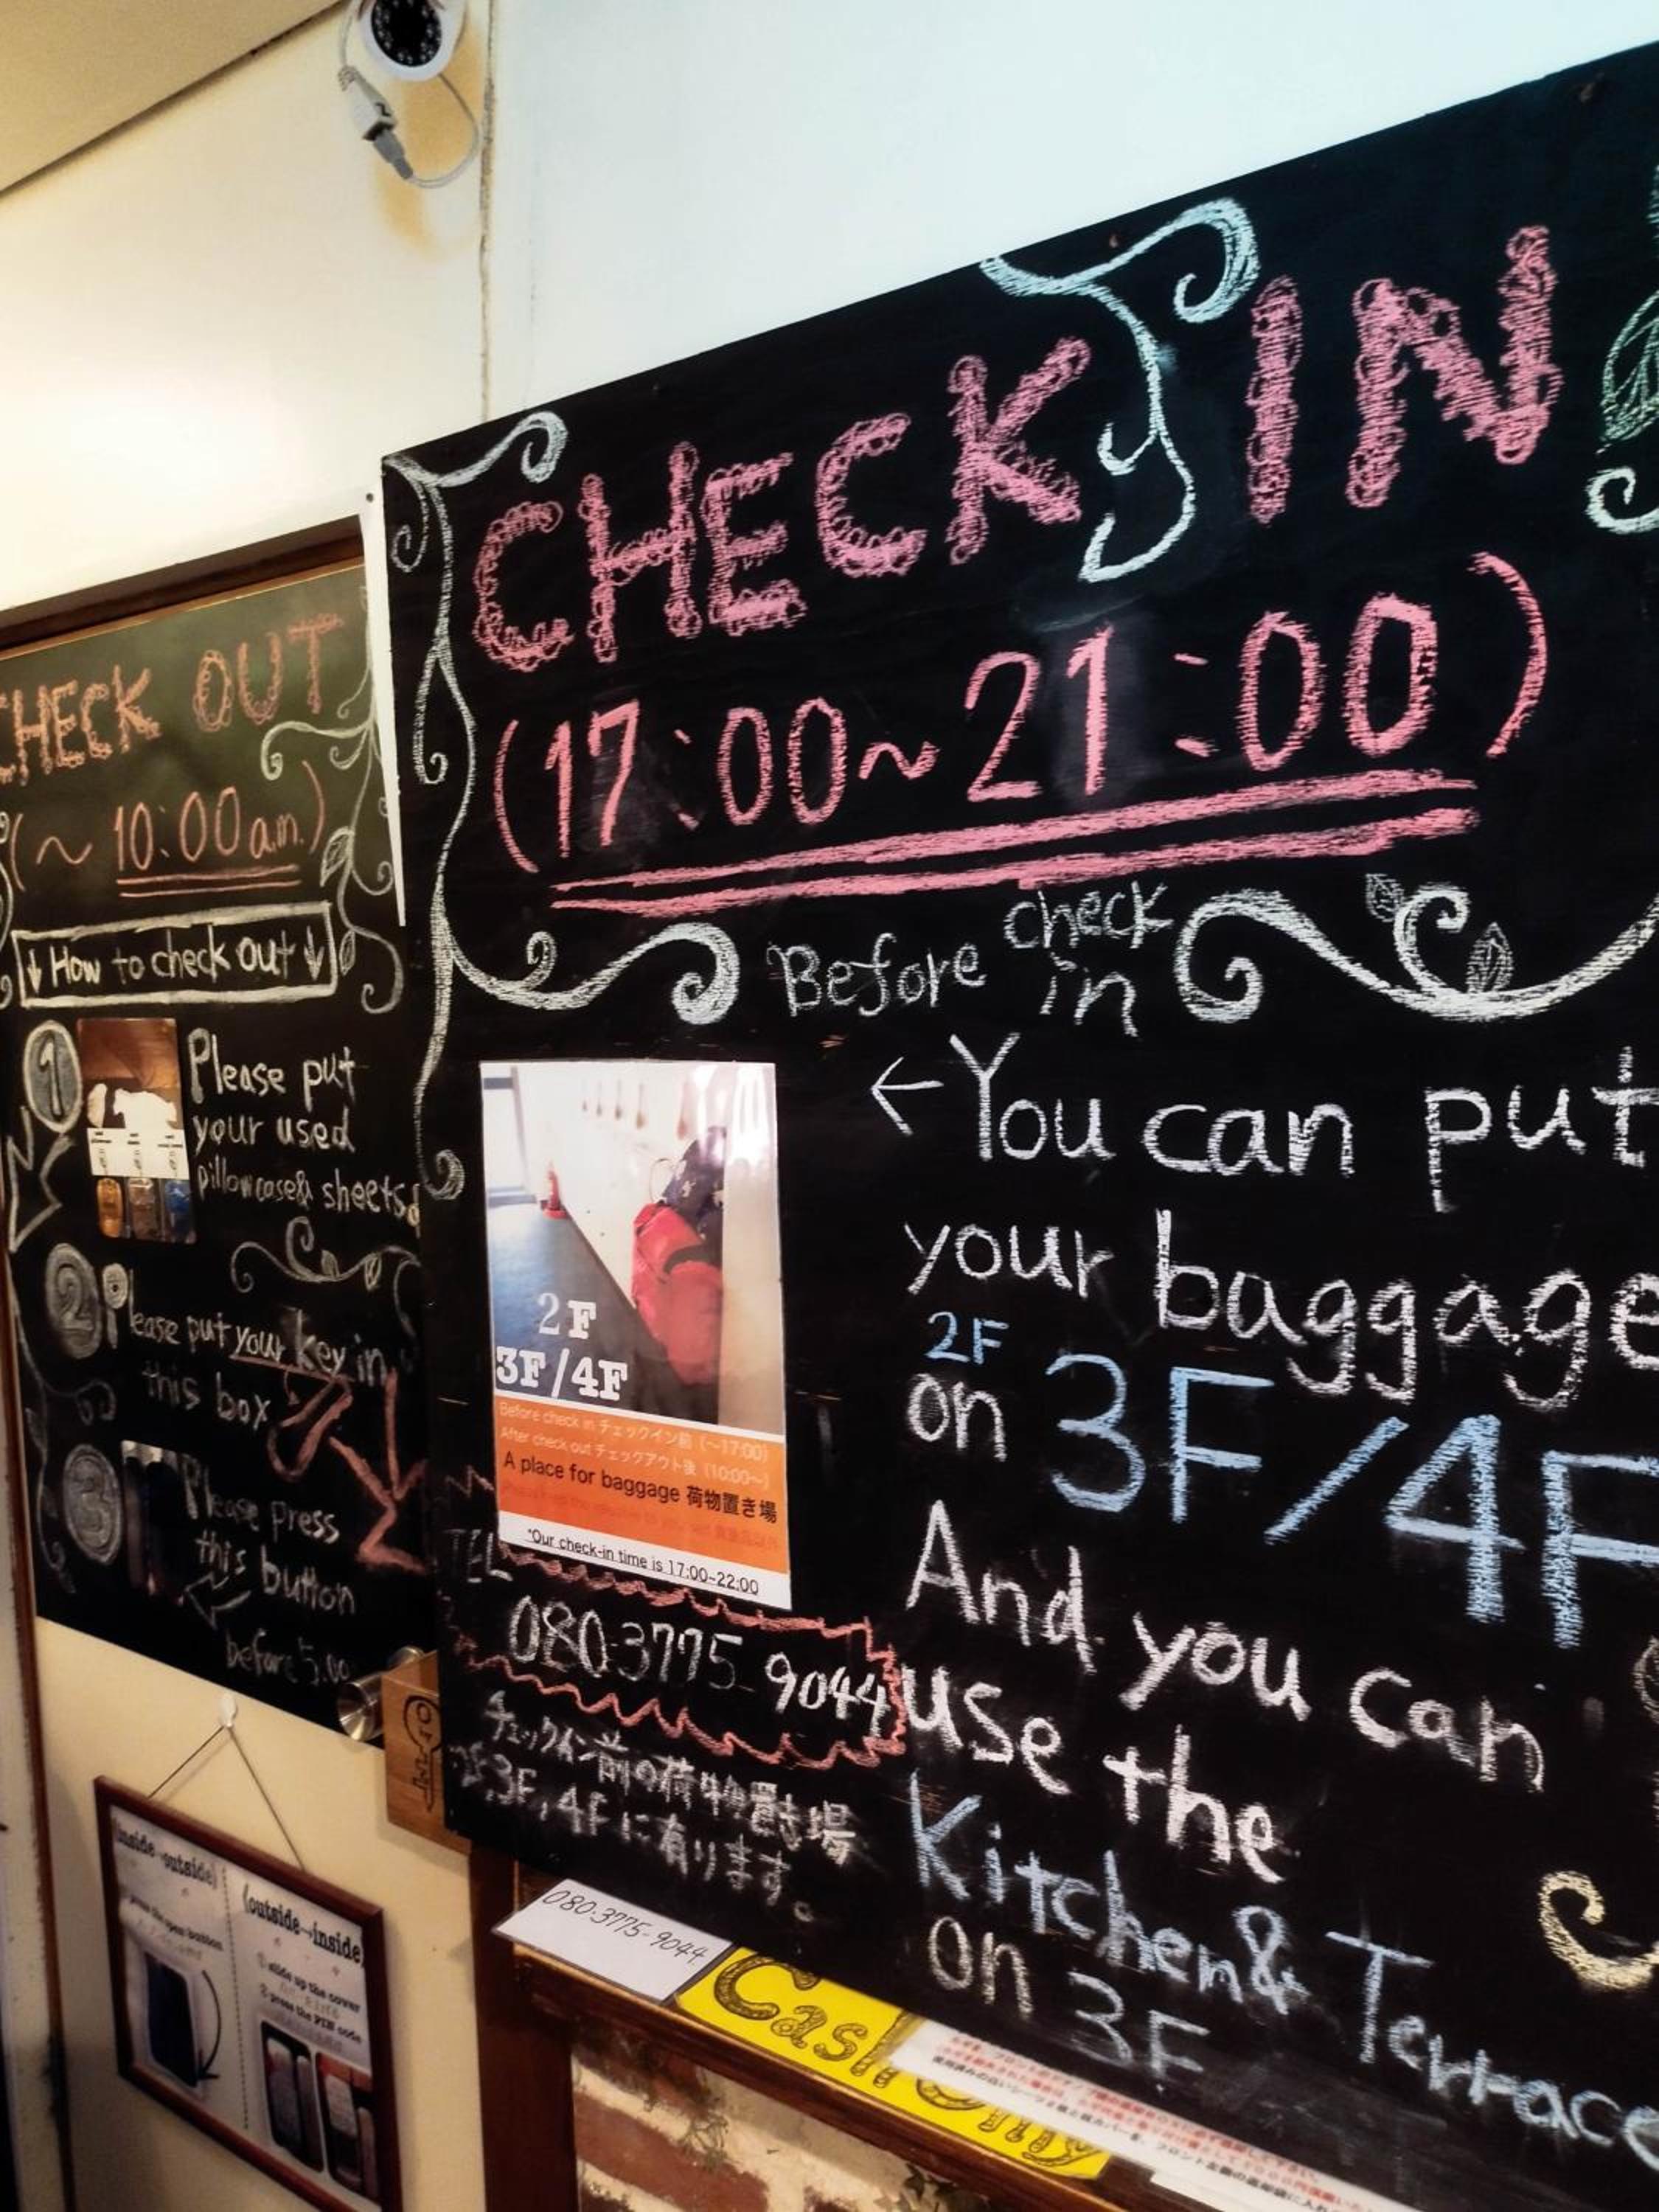 CHECK OUT
(~ 10:00 a.m.)
↓ How to check out ↓
1
Please put
your used
pillowcase& sheets
2
Please put your key in
this box
3
Please press
this button
before 5:00
CHECK IN
(17:00~21:00)
Before check
in
←You can put
your baggage
2F
on 3F/4F
And you can
use the
Kitchen& Terrace
on 3F
2F
3F/4F
Before check in チェックイン前 (~17:00)
After check out チェックアウト後 (10:00~)
A place for baggage 荷物置き場
*Our check-in time is 17:00-22:00
TEL
080-3775-9044
チェックイン前の荷物置き場
3F,4Fに有ります。
080-3775-9044
Cash Only
(inside→outside)
press the open button
(outside→inside)
① slide up the cover
② press the PIN code